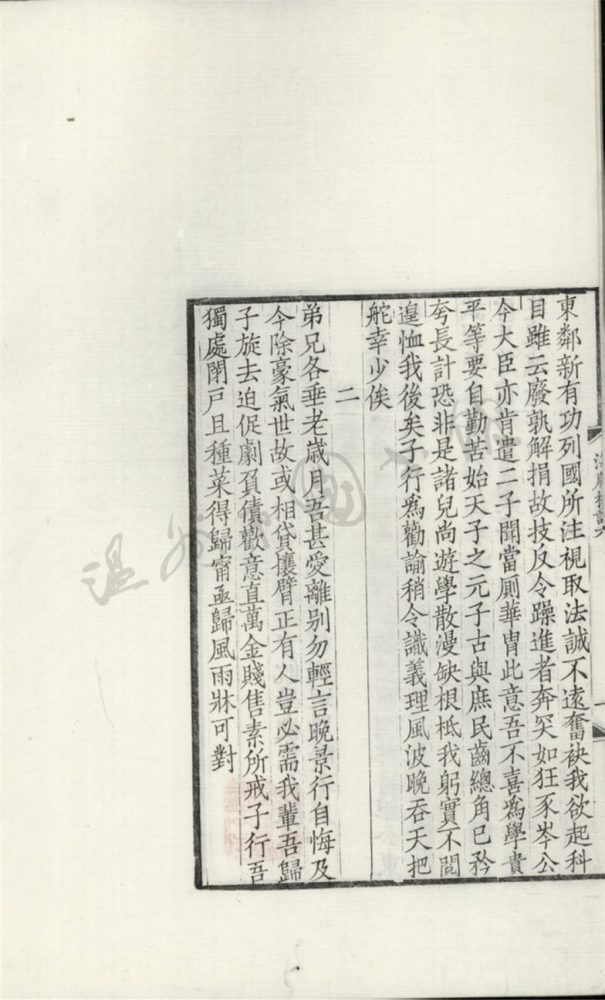 東鄰新有功列國所注視取法誠不遠奮袂我欲起科
目雖云廢孰解捐故技反令躁進者奔突如狂豕岑公
今大臣亦肯遣二子聞當厠華胄此意吾不喜爲學貴
平等要自勤苦始天子之元子古與庶民齒總角已矜
夸長計恐非是諸兒尚遊學散漫缺根柢我躬實不閱
遑恤我後矣子行爲勸諭稍令識義理風波晚吞天把
舵幸少俟
二
弟兄各垂老歲月吾甚愛離别勿輕言晚景行自悔及
今除豪氣世故或相貸攘臂正有人豈必需我輩吾歸
子旋去迫促劇負債歡意直萬金賤售素所戒子行吾
獨處閉戶且種菜得歸甯亟歸風雨牀可對
溫州圖